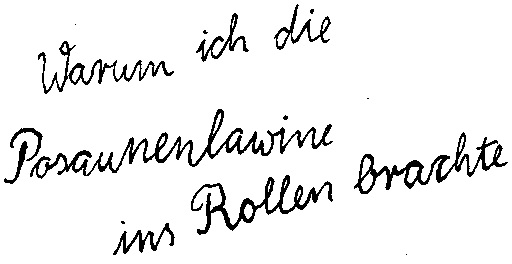 Warum ich die
Posaunenlawine
ins Rollen brachte